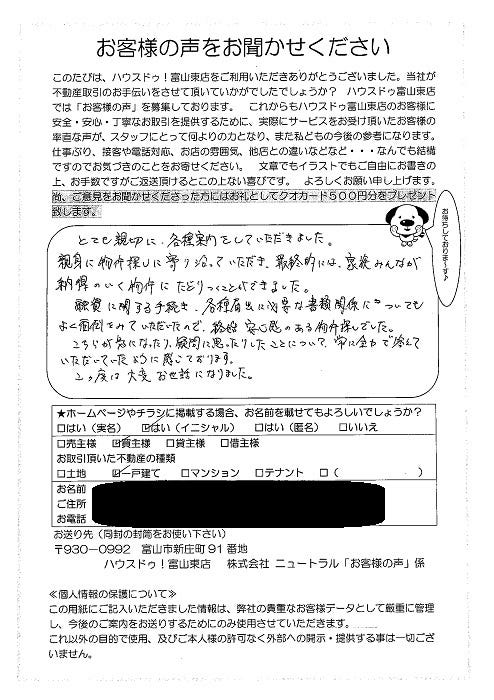 お客様の声をお聞かせください
このたびは、ハウスドゥ!富山東店をご利用いただきありがとうございました。当社が
不動産取引のお手伝いをさせて頂いていかがでしたでしょうか? ハウスドゥ富山東店
では「お客様の声」を募集しております。 これからもハウスドゥ富山東店のお客様に
安全・安心・丁寧なお取引を提供するために、実際にサービスをお受け頂いたお客様の
率直な声が、スタッフにとって何よりの力となり、また私どもの今後の参考になります。
仕事ぶり、接客や電話対応、お店の雰囲気、他店との違いなどなど・・・なんでも結構
ですのでお気づきのことをお寄せください。 文章でもイラストでもご自由にお書きの
上、お手数ですがご返送頂けるとこの上ない喜びです。 よろしくお願い申し上げます。
尚、ご意見をお聞かせくださった方にはお礼としてクオカード500円分をプレゼント
致します。
お待ちしておりまーす♪
とても親切に、各種案内をしていただきました。
親身に物件探しに寄り添っていただき、最終的には、家族みんなが
納得のいく物件にたどりつくことができました。
融資に関する手続き、各種届出に必要な書類関係についても
よく面倒をみていただいたので、終始安心感のある物件探しでした。
こちらが気になったり、疑問に思ったりしたことについて、常に全力で応えて
いただいていたように感じております。
この度は大変お世話になりました。
★ホームページやチラシに掲載する場合、お名前を載せてもよろしいでしょうか?
□はい(実名) ☑はい(イニシャル) □はい(匿名) □いいえ
□売主様 ☑買主様 □貸主様 □借主様
お取引頂いた不動産の種類
□土地 ☑一戸建て □マンション □テナント □( )
お名前
ご住所
お電話
お送り先(同封の封筒をお使い下さい)
〒930-0992 富山市新庄町91番地
ハウスドゥ!富山東店 株式会社 ニュートラル「お客様の声」係
≪個人情報の保護について≫
この用紙にご記入いただきました情報は、弊社の貴重なお客様データとして厳重に管理
し、今後のご案内をお送りするためにのみ使用させていただきます。
これ以外の目的で使用、及びご本人様の許可なく外部への開示・提供する事は一切ござ
いません。